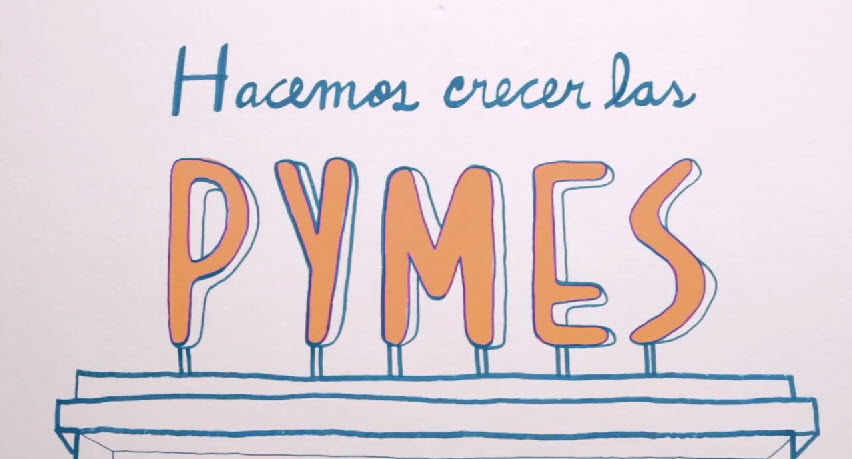 Hacemos crecer las
PYMES